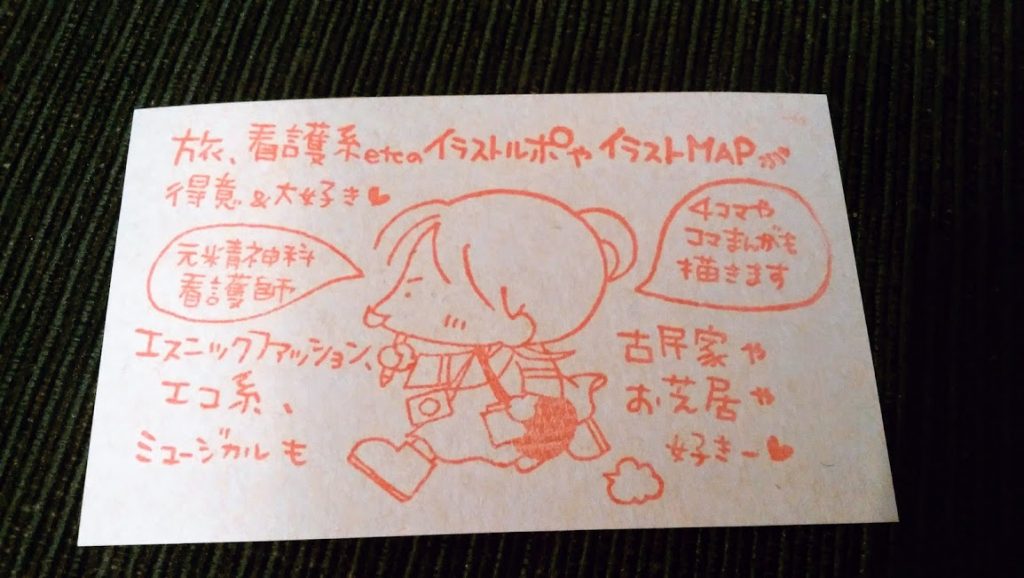 旅、看護系etcのイラストルポやイラストMAPが
得意&大好き♥
元精神科
看護師
4コマや
コマまんがも
描きます
エスニックファッション、
エコ系、
ミュージカルも
古民家や
お芝居や
好きー♥